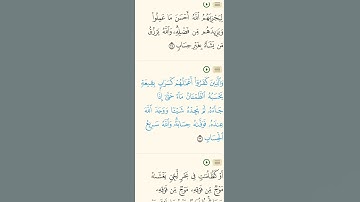 لِيَجْزِيَهُمُ ٱللَّهُ أَحْسَنَ مَا عَمِلُوا۟
وَيَزِيدَهُم مِّن فَضْلِهِۦ ۗ وَٱللَّهُ يَرْزُقُ
مَن يَشَآءُ بِغَيْرِ حِسَابٍ
وَٱلَّذِينَ كَفَرُوٓا۟ أَعْمَـٰلُهُمْ كَسَرَابٍۭ بِقِيعَةٍ
يَحْسَبُهُ ٱلظَّمْـَٔانُ مَآءً حَتَّىٰٓ إِذَا
جَآءَهُۥ لَمْ يَجِدْهُ شَيْـًٔا وَوَجَدَ ٱللَّهَ
عِندَهُۥ فَوَفَّىٰهُ حِسَابَهُۥ ۗ وَٱللَّهُ سَرِيعُ
ٱلْحِسَابِ
أَوْ كَظُلُمَـٰتٍ فِى بَحْرٍ لُّجِّىٍّ يَغْشَىٰهُ
مَوْجٌ مِّن فَوْقِهِۦ مَوْجٌ مِّن فَوْقِهِۦ